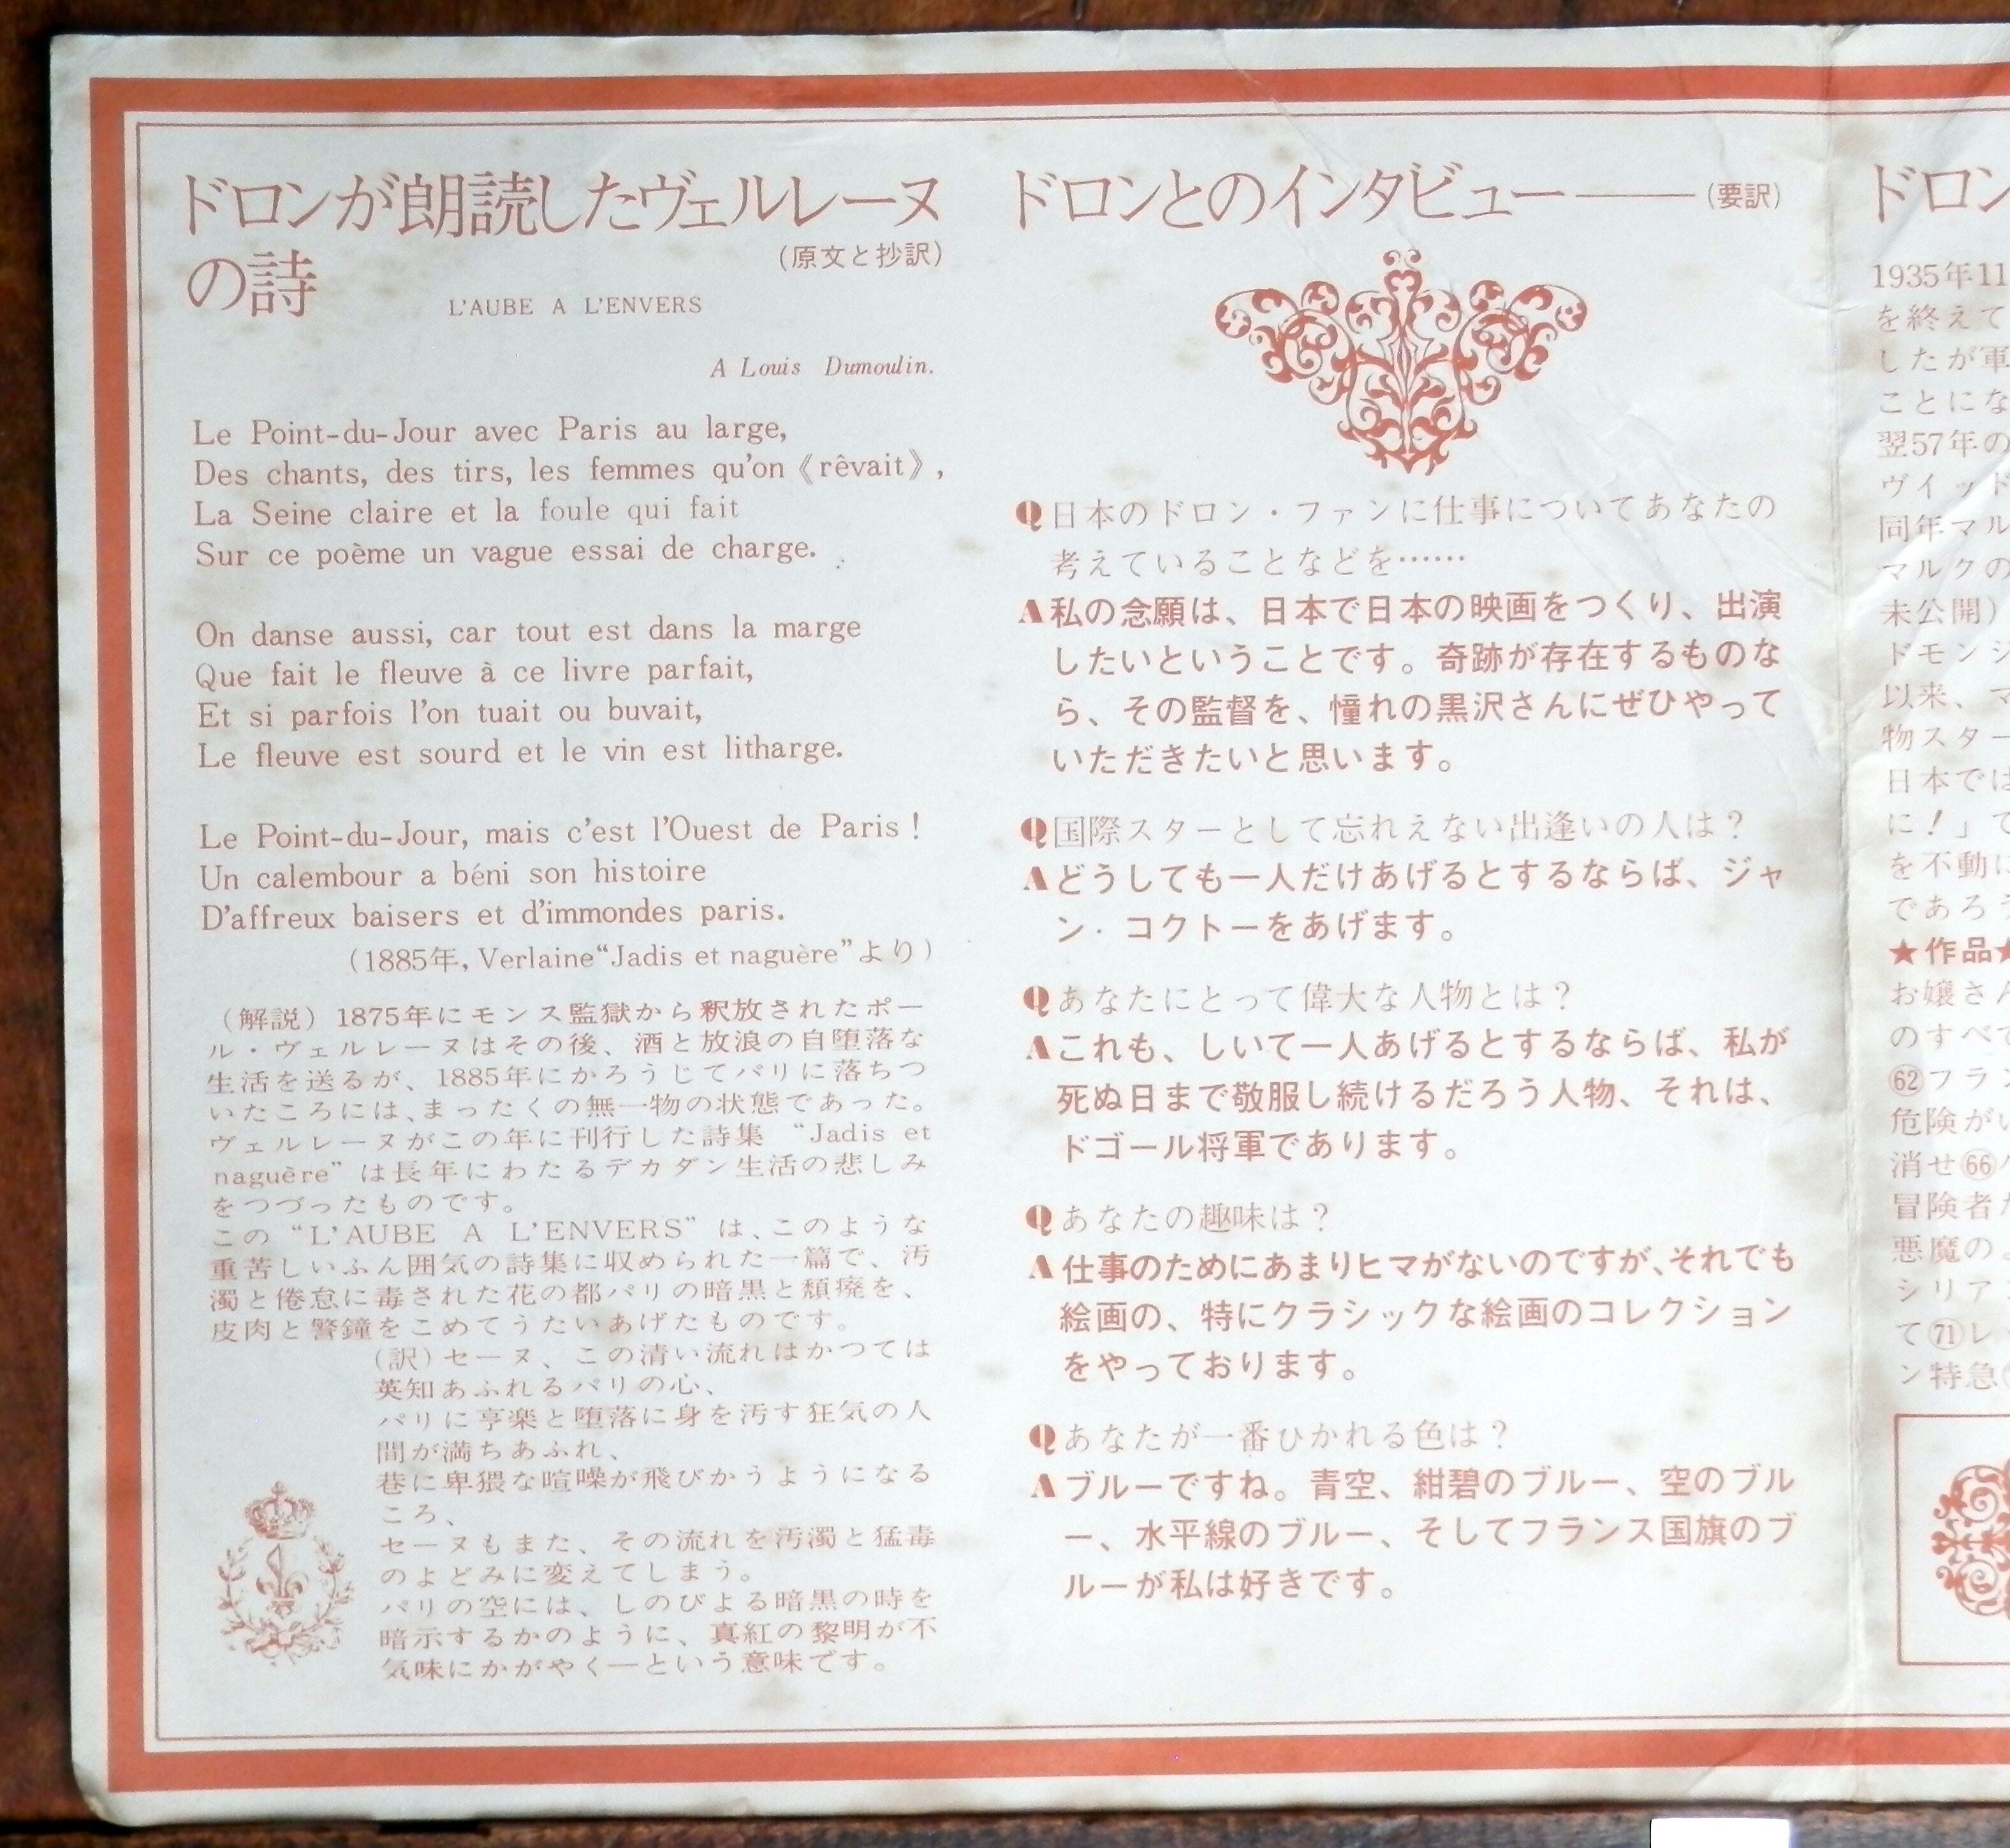 ドロンが朗読したヴェルレーヌ
の詩
(原文と抄訳)
L'AUBE A L'ENVERS
A Louis Dumoulin.
Le Point-du-Jour avec Paris au large,
Des chants, des tirs, les femmes qu'on《rêvait》,
La Seine claire et la foule qui fait
Sur ce poème un vague essai de charge.
On danse aussi, car tout est dans la marge
Que fait le fleuve à ce livre parfait,
Et si parfois l'on tuait ou buvait,
Le fleuve est sourd et le vin est litharge.
Le Point-du-Jour, mais c'est l'Ouest de Paris !
Un calembour a béni son histoire
D'affreux baisers et d'immondes paris.
(1885年, Verlaine“Jadis et naguère”より)
(解説) 1875年にモンス監獄から釈放されたポー
ル・ヴェルレーヌはその後、酒と放浪の自堕落な
生活を送るが、1885年にかろうじてパリに落ちつ
いたころには、まったくの無一物の状態であった。
ヴェルレーヌがこの年に刊行した詩集 “Jadis et
naguère” は長年にわたるデカダン生活の悲しみ
をつづったものです。
この “L'AUBE A L'ENVERS” は、このような
重苦しいふん囲気の詩集に収められた一篇で、汚
濁と倦怠に毒された花の都パリの暗黒と頽廃を、
皮肉と警鐘をこめてうたいあげたものです。
(訳)セーヌ、この清い流れはかつては
英知あふれるパリの心、
パリに亨楽と堕落に身を汚す狂気の人
間が満ちあふれ、
巷に卑猥な喧噪が飛びかうようになる
ころ、
セーヌもまた、その流れを汚濁と猛毒
のよどみに変えてしまう。
パリの空には、しのびよる暗黒の時を
暗示するかのように、真紅の黎明が不
気味にかがやく—という意味です。
ドロンとのインタビュー——(要訳)
Q日本のドロン・ファンに仕事についてあなたの
考えていることなどを……
A私の念願は、日本で日本の映画をつくり、出演
したいということです。奇跡が存在するものな
ら、その監督を、憧れの黒沢さんにぜひやって
いただきたいと思います。
Q国際スターとして忘れえない出逢いの人は？
Aどうしても一人だけあげるとするならば、ジャ
ン・コクトーをあげます。
Qあなたにとって偉大な人物とは？
Aこれも、しいて一人あげるとするならば、私が
死ぬ日まで敬服し続けるだろう人物、それは、
ドゴール将軍であります。
Qあなたの趣味は？
A仕事のためにあまりヒマがないのですが、それでも
絵画の、特にクラシックな絵画のコレクション
をやっております。
Qあなたが一番ひかれる色は？
Aブルーですね。青空、紺碧のブルー、空のブル
ー、水平線のブルー、そしてフランス国旗のブ
ルーが私は好きです。
ドロン
1935年11
を終えて
したが軍
ことにな
翌57年の
ヴィッド
同年マル
マルクの
未公開)
ドモンジ
以来、マ
物スター
日本では
に！」で
を不動に
であろう
★作品★
お嬢さん
のすべて
㉒フラン
危険がい
消せ66
冒険者た
悪魔の
シリア
て71レ
ン特急